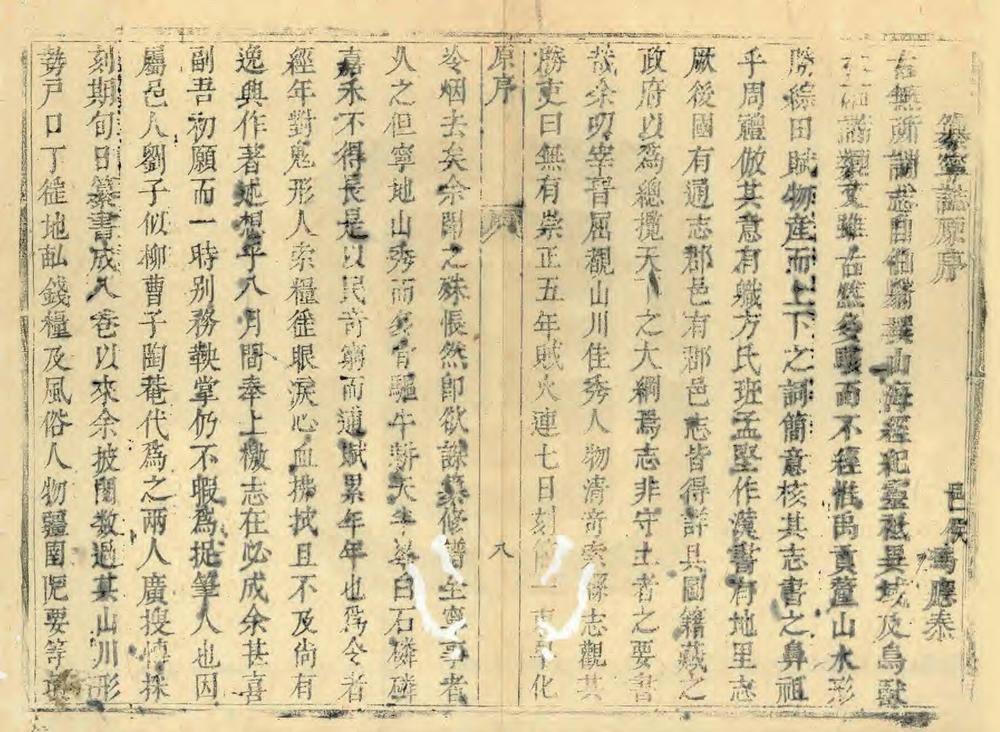 纂寧誌原序
邑侯馮應泰
古無所謂志自伯翳撰山海經紀靈祗異域及鳥獸
草木諸類文雖古然多誕而不經惟禹貢釐山水形
勝綜田賦物產而上下之詞簡意核其志書之鼻祖
乎周禮倣其意有職方氏班孟堅作漢書有地里志
厥後國有通志郡邑有郡邑志皆得詳具圖籍藏之
政府以為總攬天下之大綱焉志非守土者之要書
哉余叨宰晉屈觀山川佳秀人物清奇索縣志觀其
勝吏曰無有崇正五年賊火連七日刻
化
原序
八
冷烟去矣余聞之殊悵然即欲謀纂修
寧事者
久之但寧地山秀而
有驅牛耕天半
白石磷磷
嘉禾不得長是以民奇窮而逋賦累年年也為令者
經年對鬼形人索糧徃眼淚心血拂拭且不及尚有
逸興作著述想乎八月間奉上檄志在必成余甚喜
副吾初願而一時别務鞅掌仍不暇為捉筆人也因
屬邑人劉子似柳曹子陶菴代為之兩人廣搜博採
刻期旬日纂書成八卷以來余披閱数過其山川形
勢戸口丁徭地畆錢糧及風俗人物疆圉阨要等